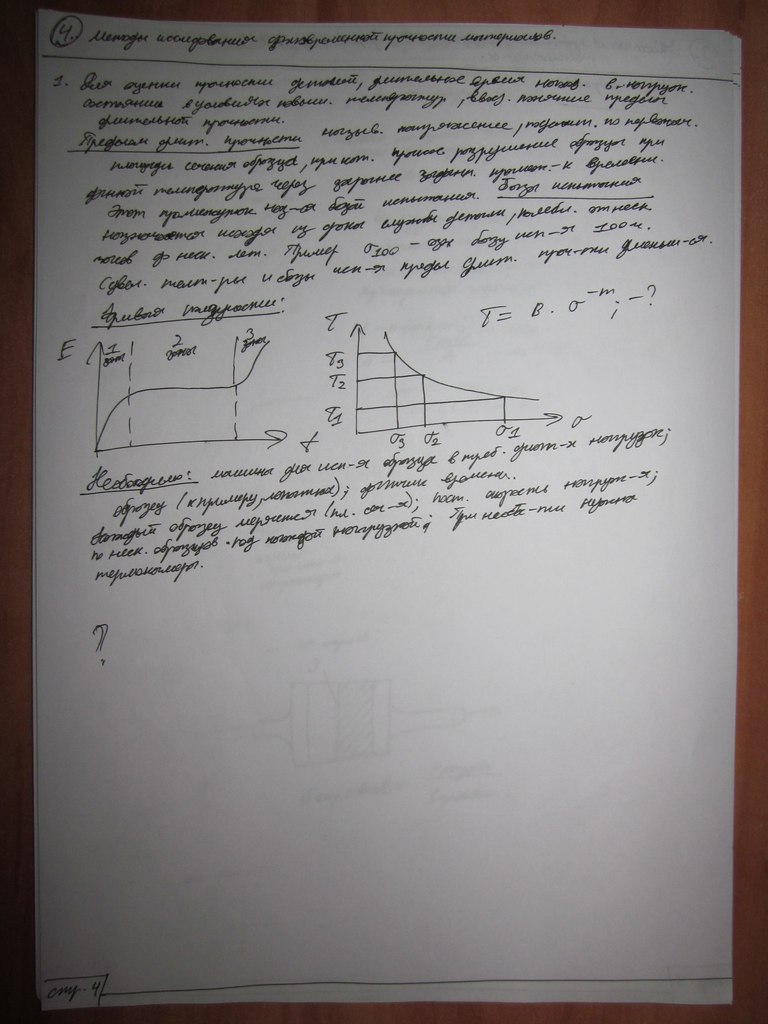 4. Методы исследования долговременной прочности материалов.
1. Для оценки прочности деталей, длительное время наход. в нагруж.
состоянии в условиях повыш. температур, ввод. понятие предела
длительной прочности.
Пределом длит. прочности назыв. напряжение, подсчит. по первонач.
площади сечения образца, при кот. происх. разрушение образца при
данной температуре через заранее заданн. промеж-к времени.
Этот промежуток наз-ся базой испытания. Базы испытания
назначается исходя из срока службы детали, колебл. от неск.
часов до неск. лет. Пример σ100 - для базы исп-я 100 ч.
С увел. темп-ры и базы исп-я предел длит. проч-ти уменьш-ся.
Кривая ползучести:
τ = B · σ^-m ; - ?
E 1 зона 2 зона 3 зона t
τ τ3 τ2 τ1 σ3 σ2 σ1 σ
Необходимо: машина для исп-я образца в треб. нагрузок;
образец (к примеру, лопатка); датчик времени.
Каждый образец меряется (пл. сеч-я); пост. скорость нагруж-я;
по неск. образцов под каждой нагрузкой; При необх-ти нужна
термокамера.
?
стр. 4